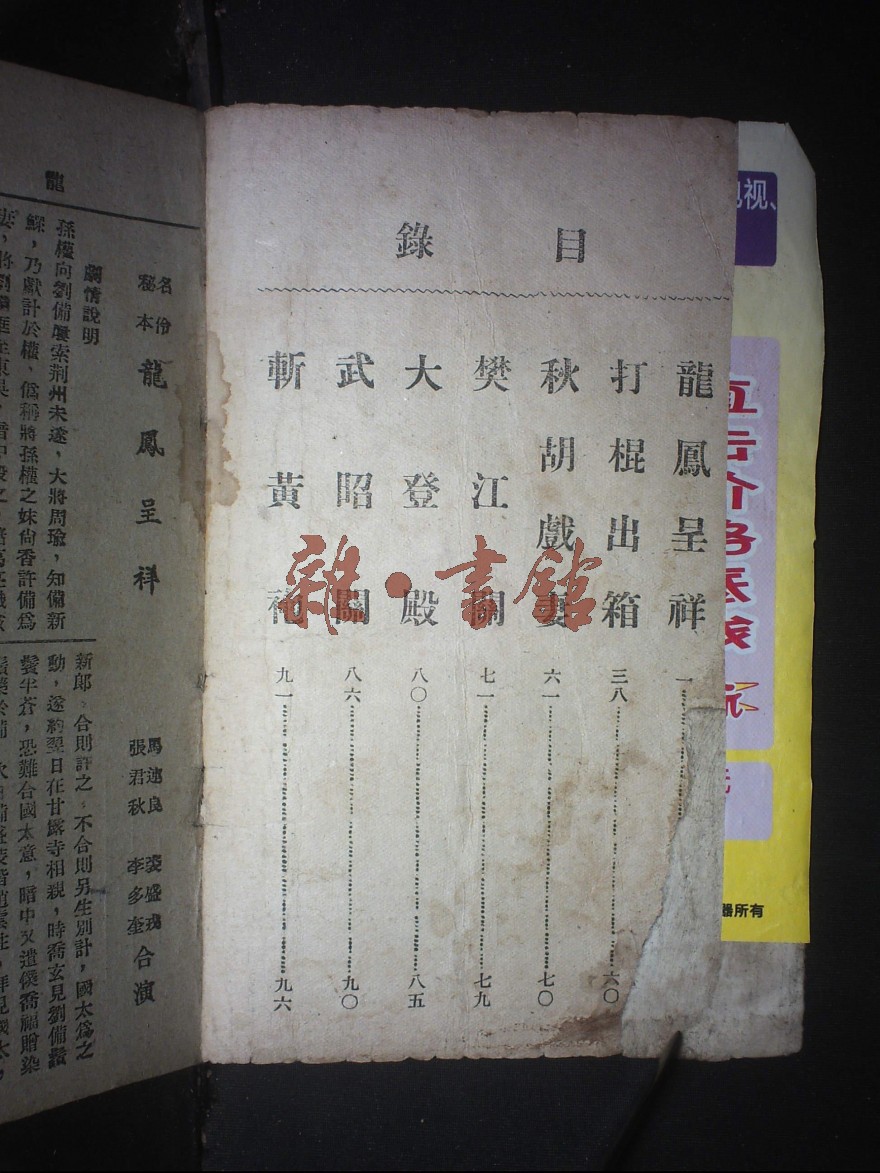 目錄
龍鳳呈祥 一
打棍出箱 三八 六〇
秋胡戲妻 六一 七〇
樊江關 七一 七九
大登殿 八〇 八五
武昭關 八六 九〇
斬黃袍 九一 九六
雜·書館
龍
名伶秘本 龍鳳呈祥
馬連良 張君秋 裘盛戎 李多奎 合演
劇情說明
孫權向劉備屢索荆州未遂，大將周瑜，知備新
鰥，乃獻計於權，僞稱將孫權之妹尙香許備爲
新郎。合則許之。不合則另生別計，國太爲之
動，遂約翌日在甘露寺相親，時喬玄見劉備鬚
鬢半蒼，恐難合國太意，暗中又遣僕喬福贈染
视、
器所有